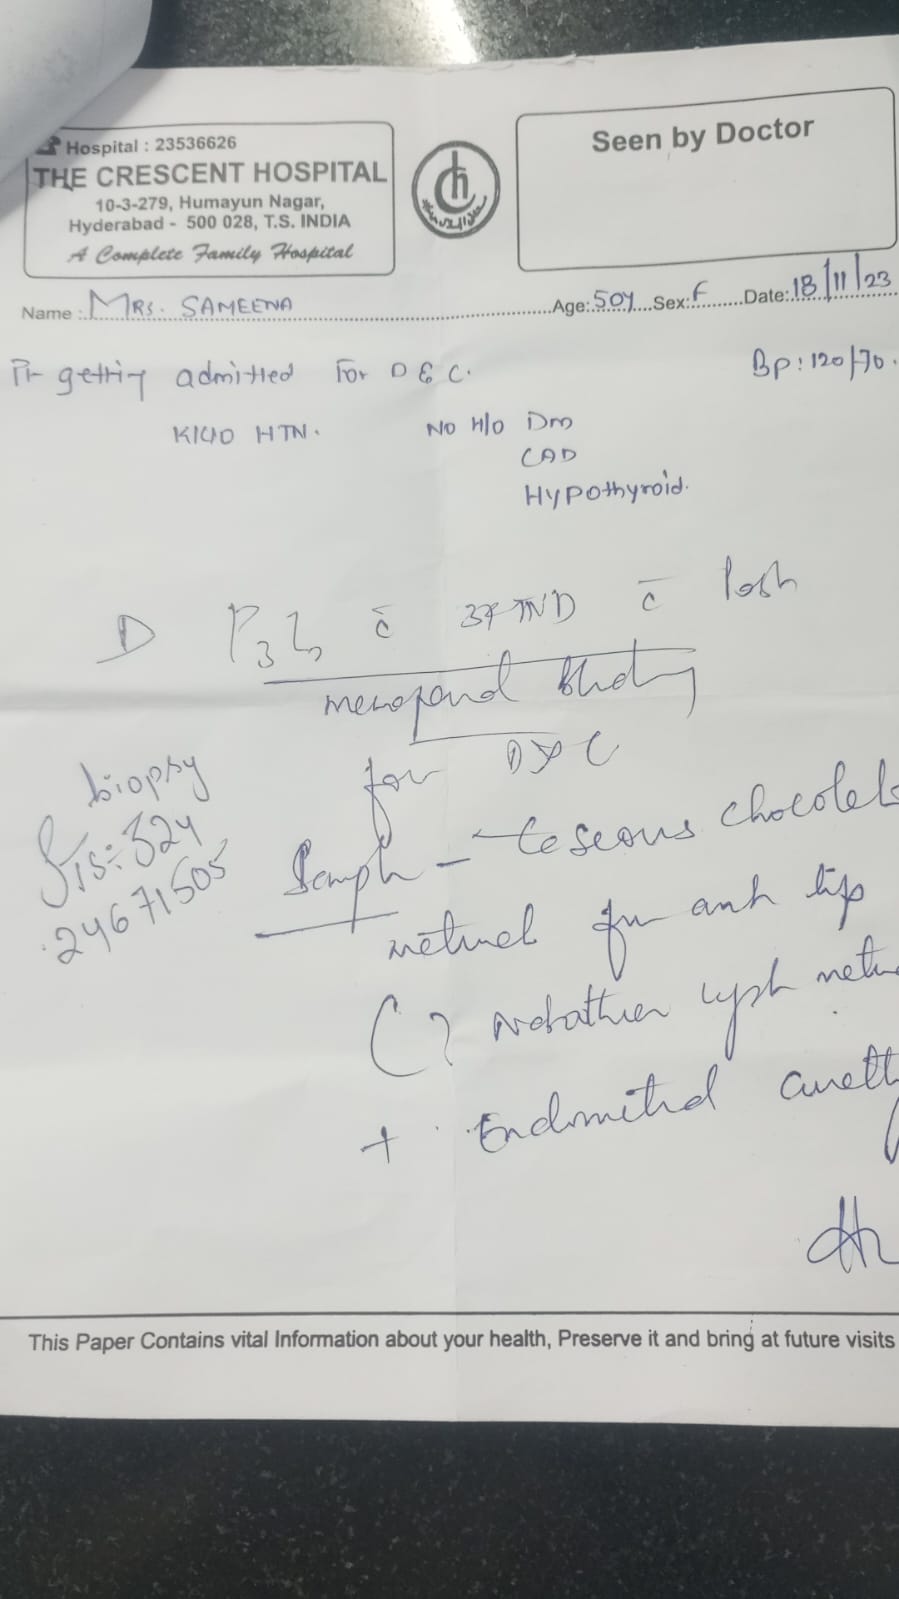 Hospital : 23536626
THE CRESCENT HOSPITAL
10-3-279, Humayun Nagar,
Hyderabad - 500 028, T.S. INDIA
A Complete Family Hospital
Seen by Doctor
Name : MRS. SAMEENA Age: 50y Sex: F Date: 18/11/23
Pt getting admitted For D & C.
BP: 120/70.
K/C/O HTN. NO H/O Dm
CAD
Hypothyroid.
D P3L3 c̄ 3 c̄ Post
menopausal Bleeding
for D&C
biopsy
324
24671505
Sample - chocolate
for
(?
+ Endometrial
This Paper Contains vital Information about your health, Preserve it and bring at future visits